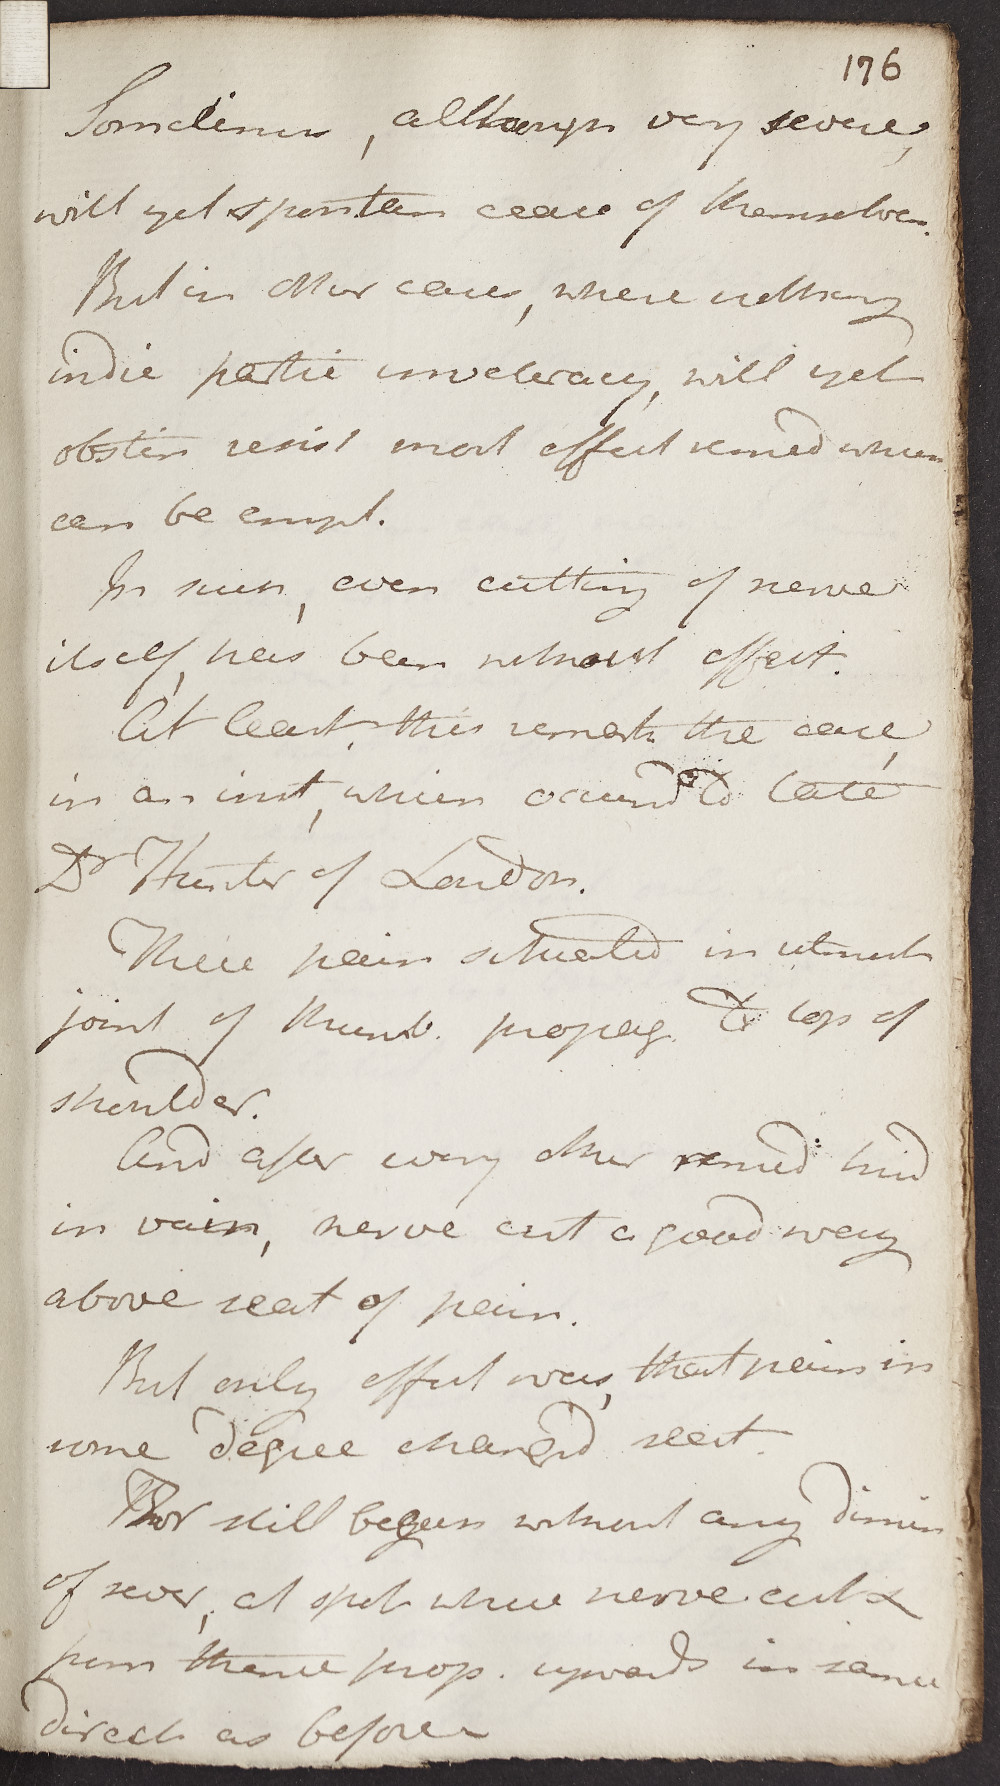 176
Sometimes, although very severe,
will yet spontan cease of themselves.
But in other cases, where nothing
indic partic inveteracy, will yet
obstin resist most effect remed which
can be empl.
In such, even cutting of nerve
itself, has been without effect.
At least, this remark the case,
in an inst, which occurrd to late
Dr Hunter of London.
There pain situated in utmost
joint of thumb. propag. to top of
shoulder.
And after every other remed tried
in vain, nerve cut a good way
above seat of pain.
But only effect was, that pain in
some degree changd seat.
For still began without any dimin
of sever, at spot where nerve cut &
from thence prop. upwards in same
direct as before